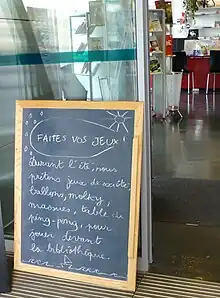 FAITES VOS JEUX !
durant l'été, nous
prêtons jeux de société,
ballons, molky,
masques, table de
ping-pong, pour
jouer devant
la bibliothèque.